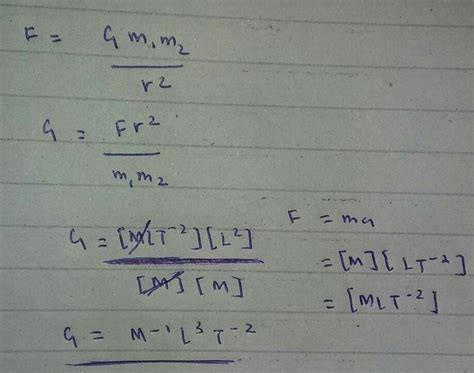 F = G m₁m₂ / r²
G = Fr² / m₁m₂
G = [MLT⁻²][L²] / [M][M]
F = ma
= [M][LT⁻²]
= [MLT⁻²]
G = M⁻¹L³T⁻²